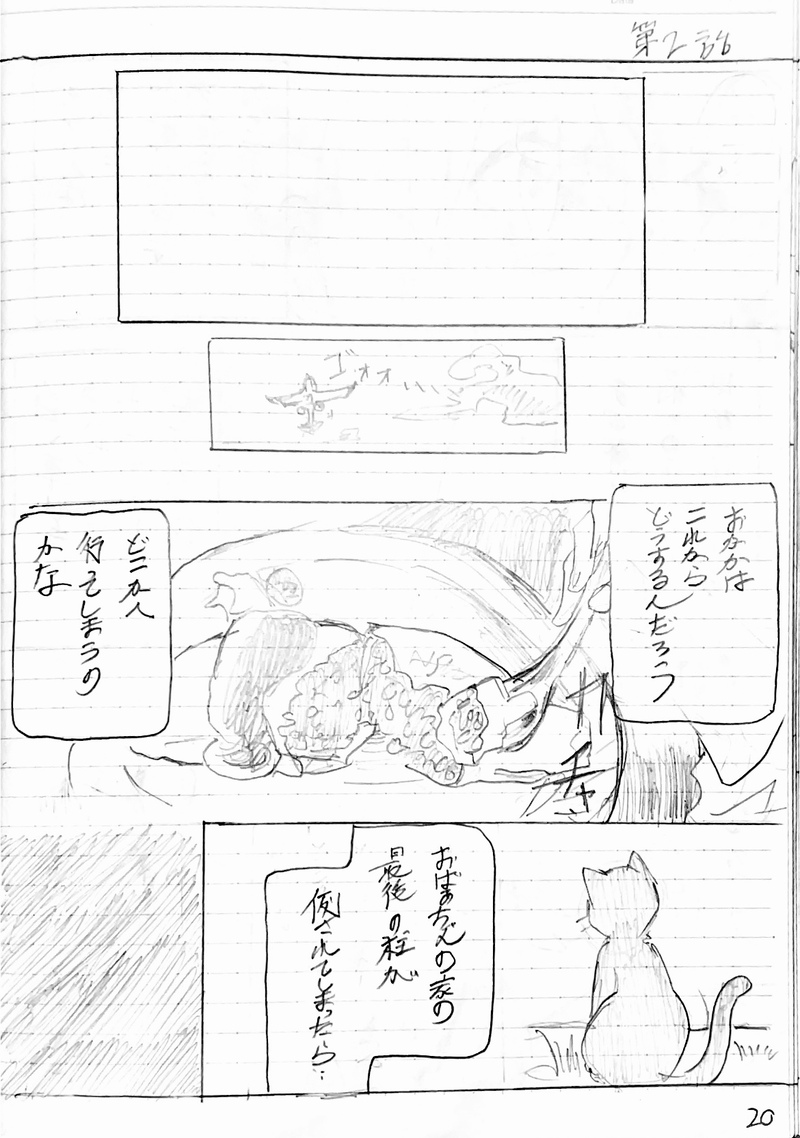 第2話
ゴォオ...
おかかは
これから
どうするんだろう
どこかへ
行ってしまうの
かな
カチャ
おばあちゃんの家の
最後の柱が
倒されてしまったら…
20